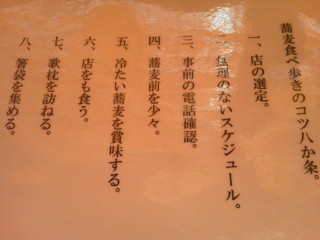 蕎麦食べ歩きのコツ八か条。
一、店の選定。
二、無理のないスケジュール。
三、事前の電話確認。
四、蕎麦前を少々。
五、冷たい蕎麦を賞味する。
六、店をも食う。
七、歌枕を訪ねる。
八、箸袋を集める。